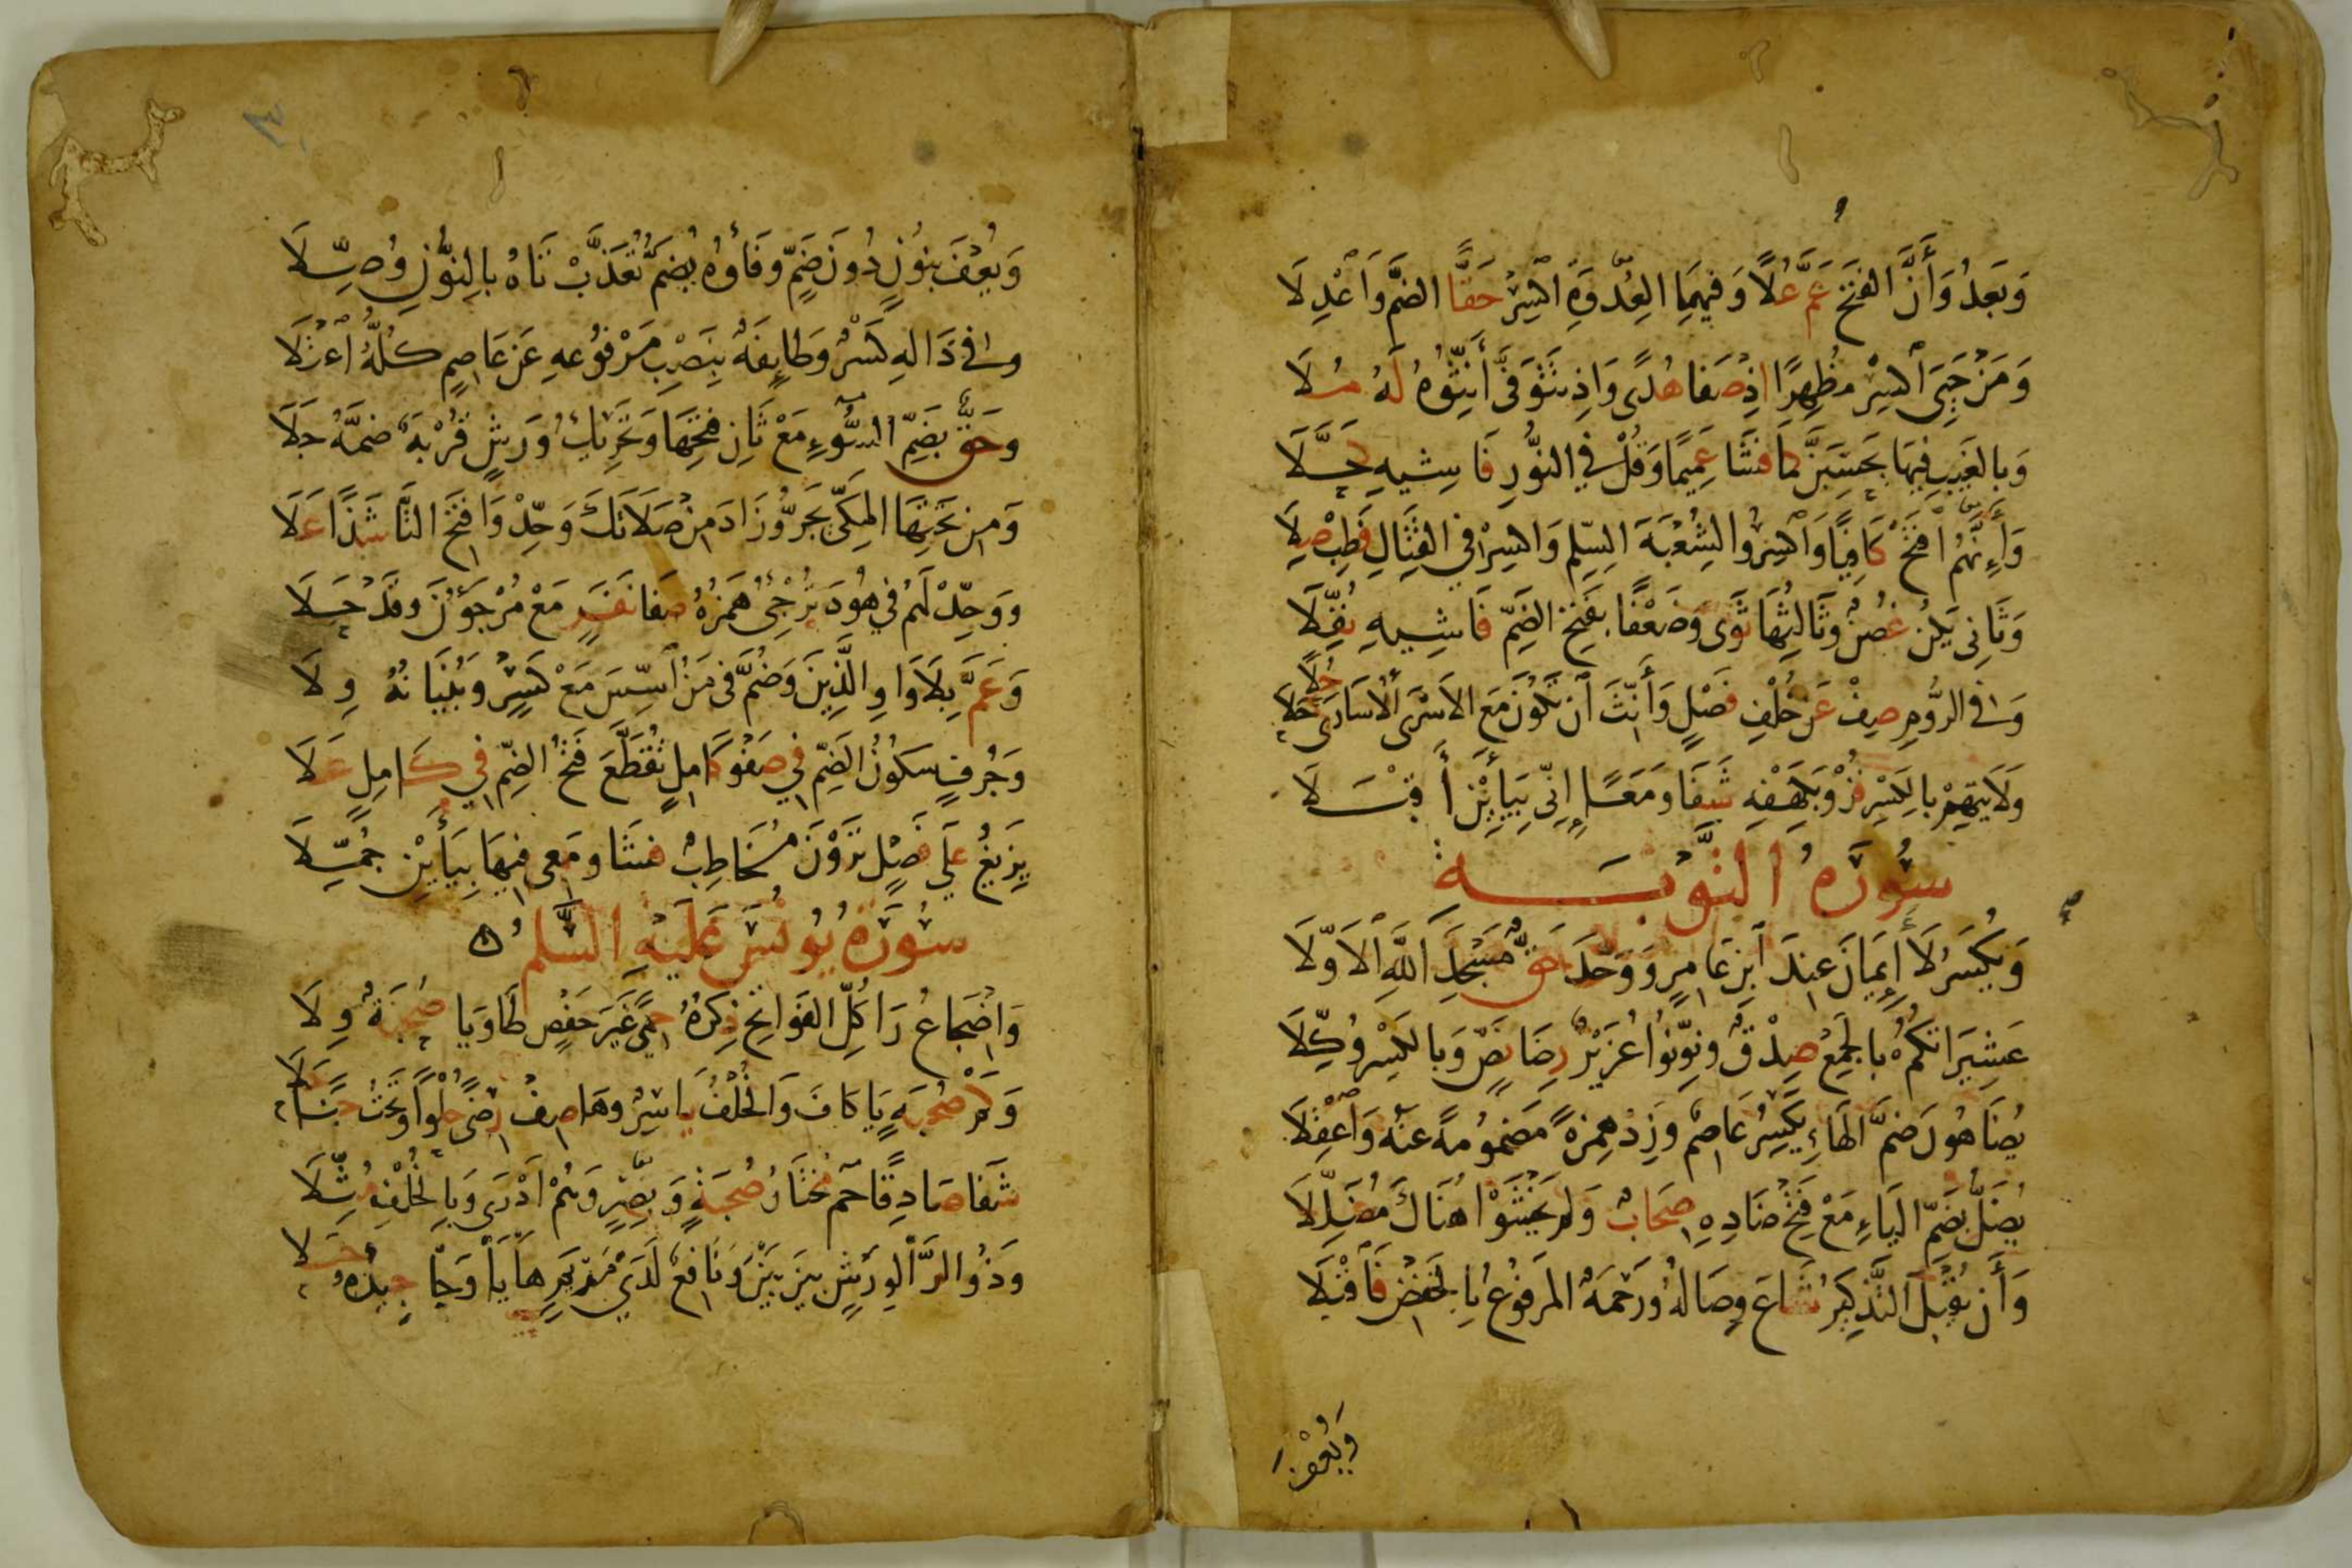 وَبَعْدُ وَأَنَّ الفَتْحَ عَمَّ عُلًا وَفِيهِمَا العُدْوَةِ اكْسِرْ حَقًّا الضَّمَّ وَاعْدِلَا
وَمَنْ حَيِيَ اكْسِرْ مُظْهِرًا إِذْ صَفَا هُدًى وَإِذْ يَتَوَفَّى أَنِّثُوهُ لَهُ مُلَا
وَبِالغَيْبِ فِيهَا يَحْسَبَنَّ كَمَا فَشَا عَمِيمًا وَقُلْ فِي النُّورِ فَاشِيهِ كَحَّلَا
وَأَنَّهُمُ افْتَحْ كَافِيًا وَاكْسِرُوا لِشُعْبَةَ السِّلْمِ وَاكْسِرْ فِي القِتَالِ فَطِبْ صِلَا
وَثَانِي يَكُنْ غُصْنٌ وَثَالِثُهَا ثَوَى وَضَعْفًا بِفَتْحِ الضَّمِّ فَاشِيهِ نُفِّلَا
وَفِي الرُّومِ صِفْ عَنْ خُلْفِ فَصْلٍ وَأَنِّثَ انْ تَكُونَ مَعَ الاَسْرَى الاُسَارَى حُلًا حَلَا
وَلَايَتِهِمْ بِالكَسْرِ فُزْ وَبِكَهْفِهِ شَفَا وَمَعًا إِنِّي بِيَاءَيْنِ أَقْبَلَا
سُورَةُ التَّوْبَةِ
وَيُكْسَرُ لَا أَيْمَانَ عِنْدَ ابْنِ عَامِرٍ وَوَحَّدَ حَقٌّ مَسْجِدَ اللَّهِ الاَوَّلَا
عَشِيرَاتُكُمْ بِالجَمْعِ صِدْقٌ وَنَوِّنُوا عُزَيْرٌ رِضَا نَصٍّ وَبِالكَسْرِ وُكِّلَا
يُضَاهُونَ ضَمَّ الهَاءِ يَكْسِرُ عَاصِمٌ وَزِدْ هَمْزَةً مَضْمُومَةً عَنْهُ وَاعْقِلَا
يُضَلُّ بِضَمِّ اليَاءِ مَعْ فَتْحِ ضَادِهِ صِحَابٌ وَلَمْ يَخْشَوْا هُنَاكَ مُضَلِّلَا
وَأَنْ يُقْبَلَ التَّذْكِيرُ شَاعَ وِصَالُهُ وَرَحْمَةٌ المَرْفُوعُ بِالخَفْضِ فَاقْبَلَا
وَيُعْفَ
وَيُعْفَ بِنُونٍ دُونَ ضَمٍّ وَفَاؤُهُ يُضَمُّ تُعَذَّبْ تَاهُ بِالنُّونِ وُصِّلَا
وَفِي ذَالِهِ كَسْرٌ وَطَائِفَةٌ بِنَصْبِ مَرْفُوعِهِ عَنْ عَاصِمٍ كُلُّهُ اعْتَلَا
وَحَقٌّ بِضَمِّ السُّوءِ مَعْ ثَانِ فَتْحِهَا وَتَحْرِيكُ وَرْشٍ قُرْبَةٌ ضَمُّهُ جَلَا
وَمِنْ تَحْتِهَا المَكِّي يَجُرُّ وَزَادَ مِنْ صَلَاتَكَ وَحِّدْ وَافْتَحِ التَّا شَذًا عَلَا
وَوَحِّدْ لَهُمْ فِي هُودَ تُرْجِئُ هَمْزُهُ صَفَا نَفَرٍ مَعْ مُرْجَؤُنَ وَقَدْ حَلَا
وَعَمَّ بِلَا وَاوِ الَّذِينَ وَضُمَّ فِي مَنُ اسِّسَ مَعْ كَسْرٍ وَبُنْيَانُهُ وِلَا
وَجُرْفٍ سُكُونُ الضَّمِّ فِي صَفْوِ كَامِلٍ تُقَطَّعَ فَتْحُ الضَّمِّ فِي كَامِلٍ عَلَا
يَزِيغُ عَلَى فَصْلٍ تَرَوْنَ مُخَاطِبٌ فَشَا وَمَعِي فِيهَا بِيَاءَيْنِ جُمِّلَا
سُورَةُ يُونُسَ عَلَيْهِ السَّلَمُ
وَإِضْجَاعُ رَا كُلِّ الفَوَاتِحِ ذِكْرُهُ حِمًى غَيْرَ حَفْصٍ طَا وَيَا صُحْبَةٌ وِلَا
وَكَمْ صُحْبَةٍ يَا كَافَ وَالخُلْفُ يَاسِرٌ وَهَا صِفْ رِضًى حُلْوًا وَتَحْتُ جَنًا حَلَا
شَفَا صَادِقًا حمَ مُخْتَارُ صُحْبَةٍ وَبَصْرٍ وَهُمْ أَدْرَى وَبِالخُلْفِ مُثِّلَا
وَذُو الرَّا لِوَرْشٍ بَيْنَ بَيْنَ وَنَافِعٌ لَدَى مَرْيَمٍ هَا يَا وَحَا جِيدُهُ حَلَا